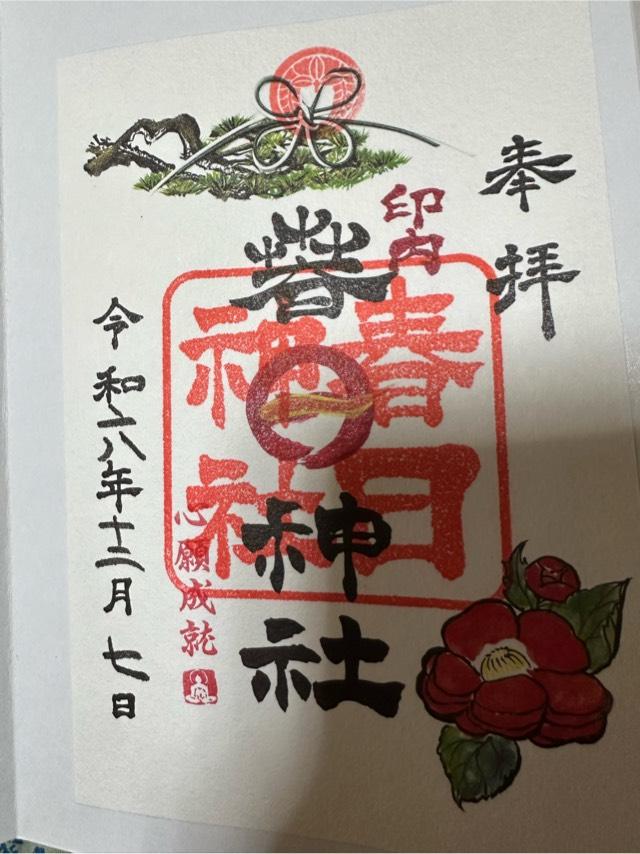 奉拝
印内
春日神社
春日
神社
心願成就
令和六年十二月七日